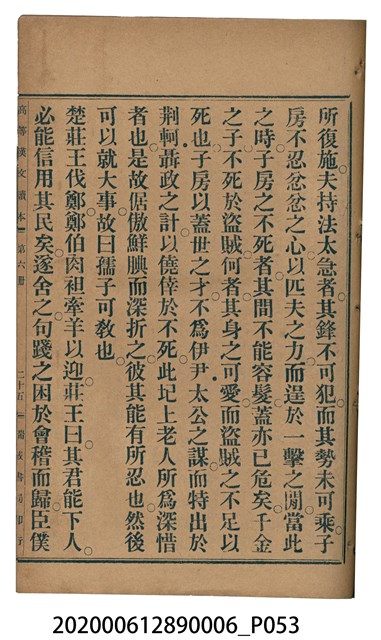 所復施夫持法太急者其鋒不可犯而其勢未可乘子
房不忍忿忿之心以匹夫之力而逞於一擊之閒當此
之時子房之不死者其間不能容髮蓋亦已危矣千金
之子不死於盜賊何者其身之可愛而盜賊之不足以
死也子房以蓋世之才不爲伊尹太公之謀而特出於
荆軻聶政之計以僥倖於不死此圯上老人所爲深惜
者也是故倨傲鮮腆而深折之彼其能有所忍也然後
可以就大事故曰孺子可敎也
楚莊王伐鄭鄭伯肉袒牽羊以迎莊王曰其君能下人
必能信用其民矣遂舍之句踐之困於會稽而歸臣僕
高等漢文讀本 第六册 二十五
202000612890006_P053